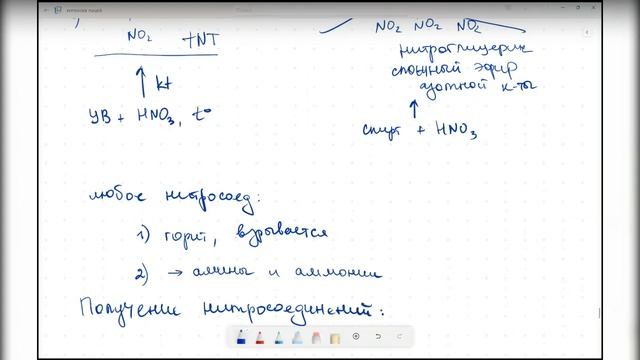 NO2 +TNT
kt
УВ + HNO3, t°
NO2 NO2 NO2
нитроглицерин
сложный эфир
азотной к-ты
спирт + HNO3
любое нитросоед:
1) горит, взрывается
2) → амины и аммоний
Получение нитросоединений: